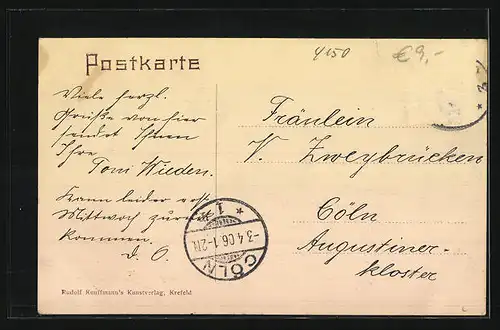 4150
€ 9,-
Postkarte
Viele herzl.
Grüße von hier
sendet Ihnen
Ihre
Toni Wieden.
Kann leider erst
Mittwoch zurück
kommen.
d. O.
Fräulein
V. Zweybrücken
Cöln
Augustiner-
kloster
* 1 *
-3.4.06.1-2N.
CÖLN
Rudolf Kauffmann's Kunstverlag, Krefeld